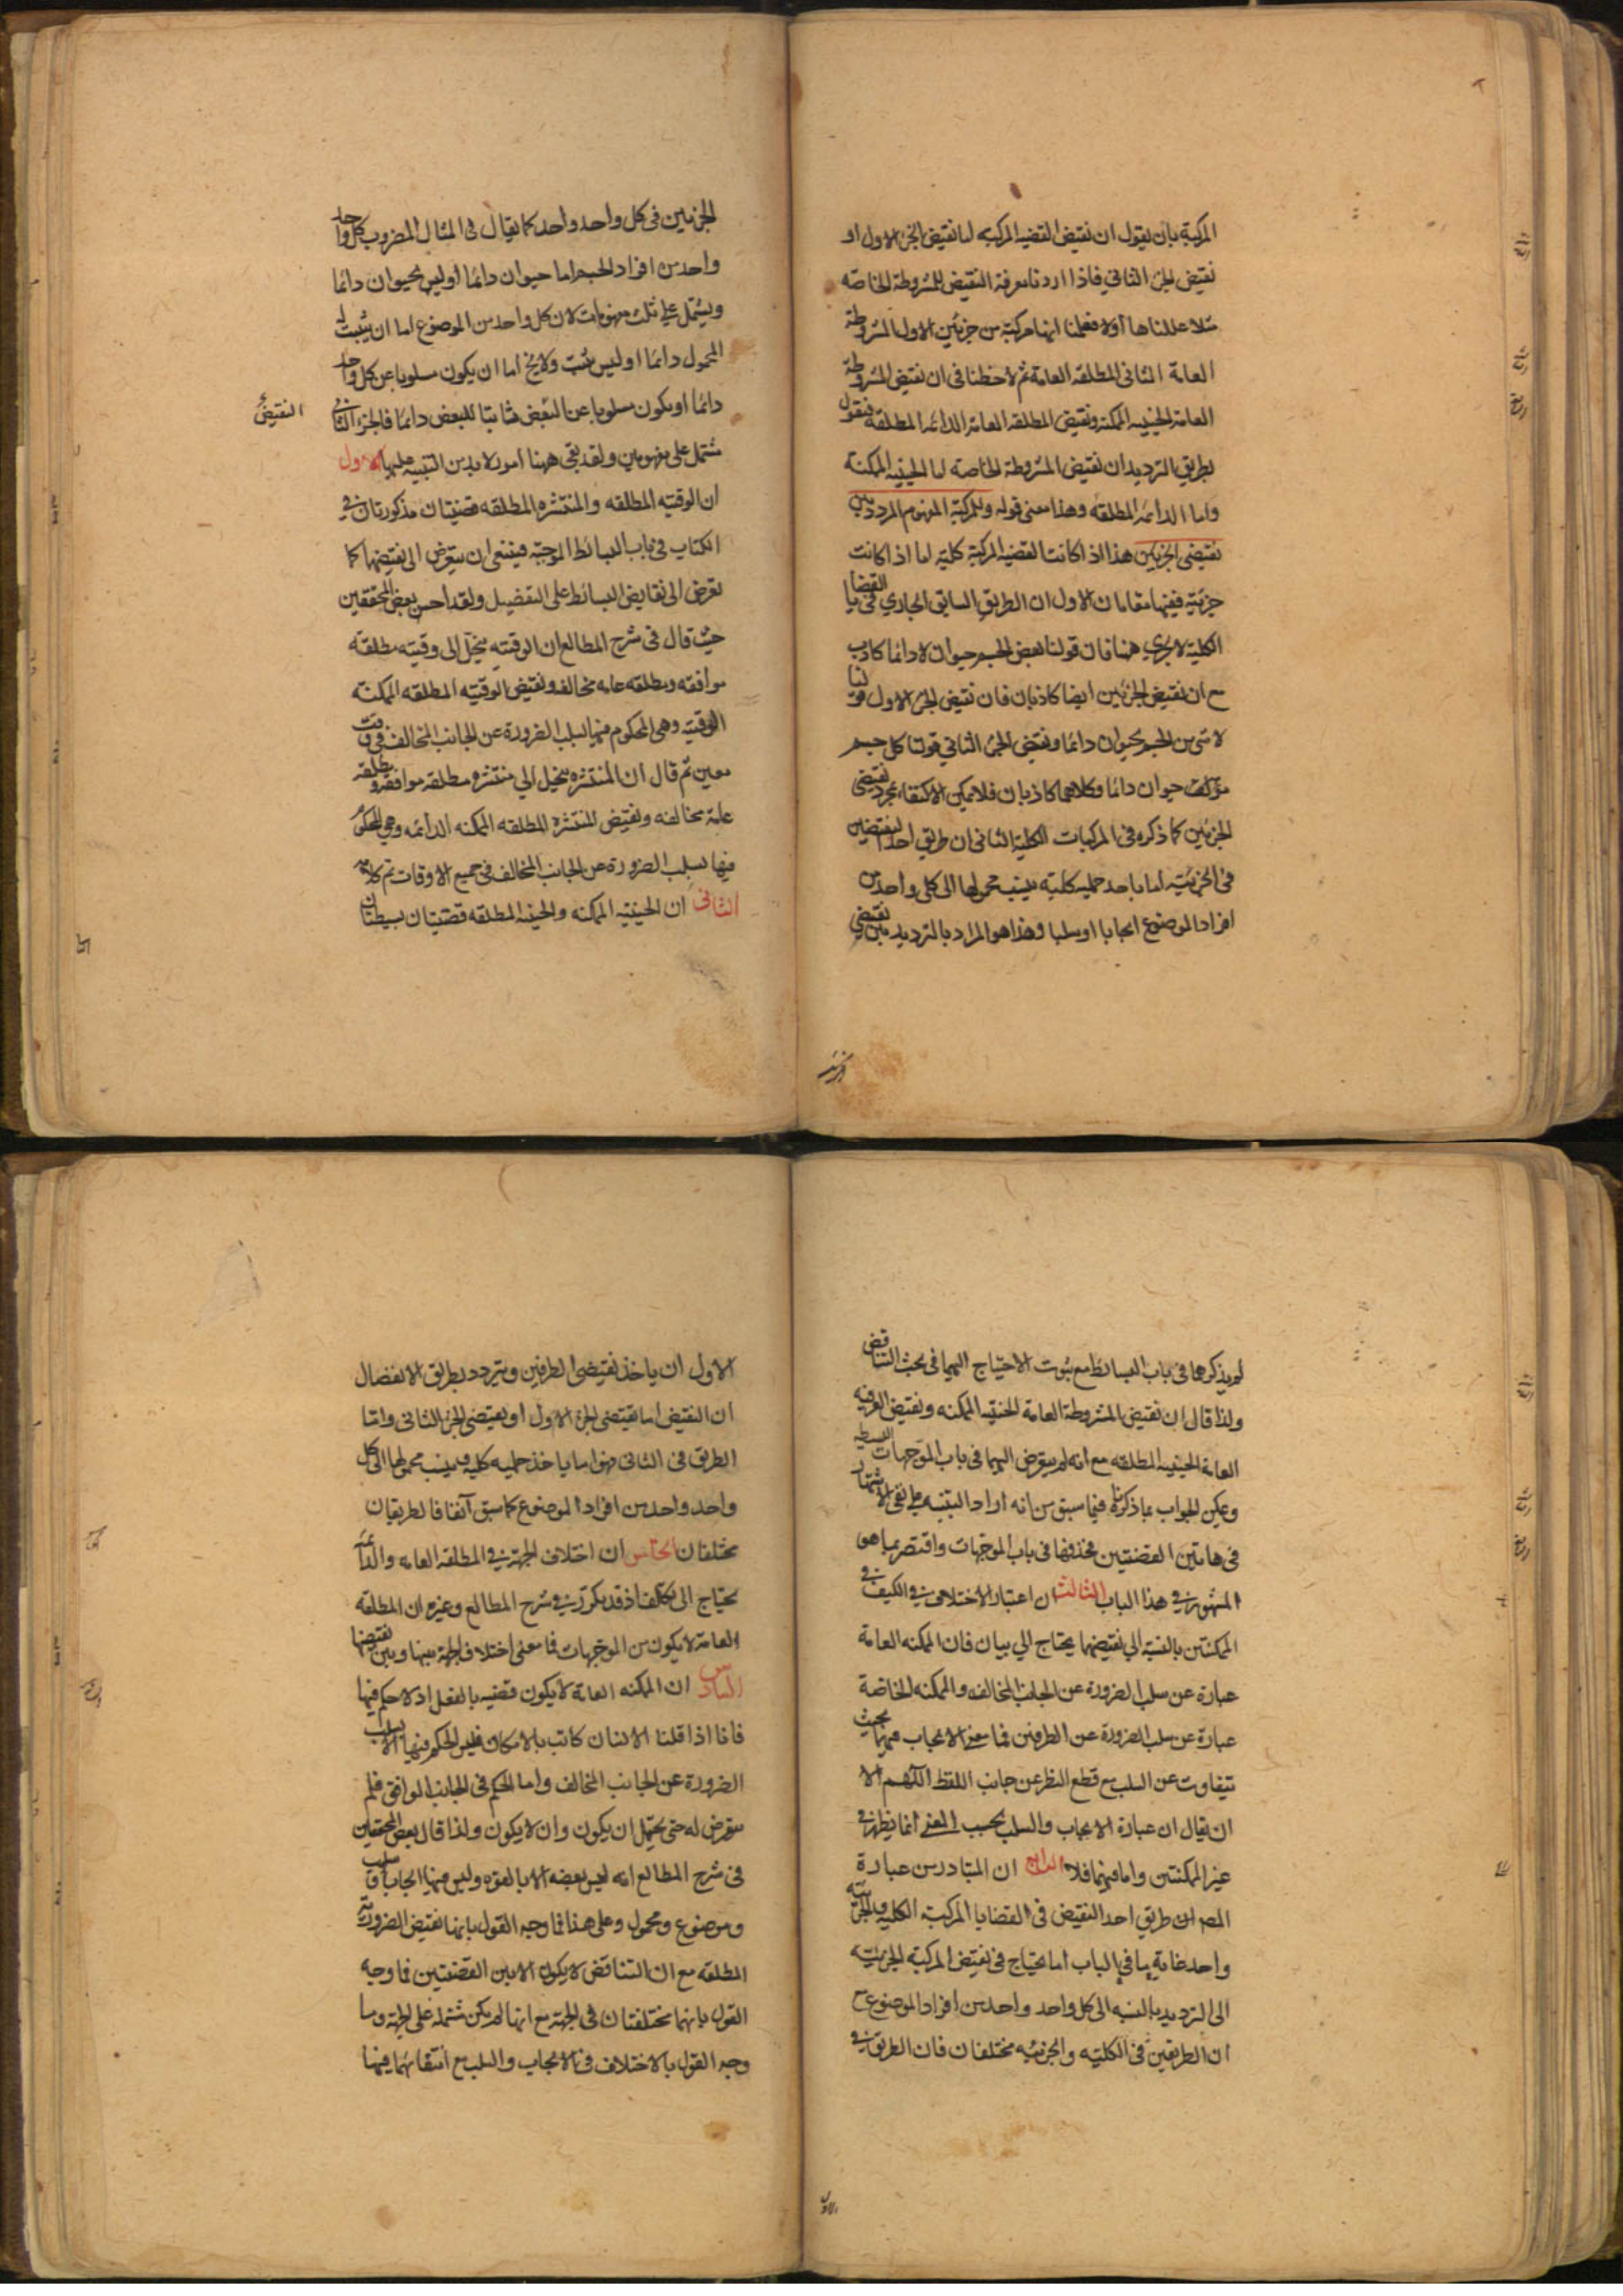 المركبة بان يقول ان نقيض القضيه المركبه اما نقيض الجزء الاول او
نقيض الجزء الثاني فاذا اردنا معرفة النقيض للمشروطة الخاصه
مثلا حللناها اولا فعلمنا انها مركبة من جزئين الاول المشروطة
العامة الثانى المطلقه العامة ثم لاحظنا فى ان نقيض المشروطة
العامة الحينيه الممكنة ونقيض المطلقه العامة الدائمه المطلقة فنقول
بطريق الترديد ان نقيض المشروطة الخاصه اما الحينيه الممكنة
واما الدائمه المطلقه وهذا معنى قوله وللمركبة المفهوم المردد بين
نقيضى الجزئين هذا اذا كانت القضيه المركبة كلية اما اذا كانت
جزئية ففيها مقامان الاول ان الطريق السابق الجاري في القضايا
الكلية لا يجري ههنا فان قولنا بعض الجسم حيوان لا دائما كاذب
مع ان نقيض الجزئين ايضا كاذبان فان نقيض الجزء الاول قولنا
لا شى من الجسم بحيوان دائما ونقيض الجزء الثاني قولنا كل جسم
حيوان دائما وكلاهما كاذبان فلا يمكن الاكتفاء بمجرد نقيضى
الجزئين كما ذكره فى المركبات الكلية الثانى ان طريق اخذ النقيضين
فى الجزئية اما باخذ حمليه كلية ينسب محمولها الى كل واحد من
افراد الموضوع ايجابا او سلبا وهذا هو المراد بالترديد بين نقيضي
الجزئين فى كل واحد واحد كما يقال فى المثال المضروب كل واحد
واحد من افراد الجسم اما حيوان دائما او ليس بحيوان دائما
ويشتمل على ثلث مفهومات لان كل واحد من الموضوع اما ان يثبت له
المحمول دائما او ليس يثبت ولا يخ اما ان يكون مسلوبا عن كل واحد
دائما او يكون مسلوبا عن البعض ثابتا للبعض دائما فالجزء الثاني
النقيض
مشتمل على مفهومين ولقد بقى ههنا امور لا بد من التنبيه عليها الاول
ان الوقتيه المطلقه والمنتشره المطلقه قضيتان مذكورتان في
الكتاب فى باب البسائط الموجبه فينبغى ان يتعرض الى نقيضهما كما
تعرض الى نقايض البسائط على التفضيل ولقد احسن بعض المحققين
حيث قال فى شرح المطالع ان الوقتيه ينحل الى وقتيه مطلقه
موافقه ومطلقه عامه مخالفه ونقيض الوقتيه المطلقه الممكنه
الوقتيه وهى المحكوم فيها بسلب الضرورة عن الجانب المخالف فى وقت
معين ثم قال ان المنتشره ينحل الي منتشره مطلقه موافقه ومطلقه
عامة مخالفه ونقيض المنتشره المطلقه الممكنه الدائمه وهي المحكوم
فيها بسلب الضرورة عن الجانب المخالف فى جميع الاوقات تم كلامه
الثانى ان الحينيه الممكنه والحينيه المطلقه قضيتان بسيطتان
لم يذكرهما فى باب البسائط مع ثبوت الاحتياج اليهما فى بحث التناقض
ولذا قال ان نقيض المشروطة العامة الحينيه الممكنه ونقيض العرفيه
العامة الحينيه المطلقه مع انه لم يتعرض اليهما فى باب الموجهات البسيطه
ويمكن الجواب بما ذكرنا فيما سبق من انه اراد التنبيه على نفى الاشتهار
فى هاتين القضيتين فحذفها فى باب الموجهات واقتصر بما هو
المشهور في هذا الباب الثالث ان اعتبار الاختلاف في الكيف في
الممكنتين بالنسبة الي نقيضهما يحتاج الي بيان فان الممكنه العامة
عبارة عن سلب الضرورة عن الجانب المخالف والممكنه الخاصة
عبارة عن سلب الضرورة عن الطرفين فما معنى الايجاب فيهما بحيث
يتفاوت عن السلب مع قطع النظر عن جانب اللفظ اللهم الا
ان يقال ان عبارة الايجاب والسلب بحسب المعنى انما يظهر في
غير الممكنتين واما فيهما فلا الرابع ان المتبادر من عبارة
المص ان طريق احد النقيض فى القضايا المركبة الكلية والجزئيه
واحد غاية ما في الباب اما يحتاج فى نقيض المركبة الجزئيه
الى الترديد بالنسبه الى كل واحد واحد من افراد الموضوع مع
ان الطريقين فى الكلية والجزئيه مختلفان فان الطريق في
الاول ان ياخذ نقيضى الطرفين ويتردد بطريق الانفصال
ان النقيض اما نقيضى الجزء الاول او نقيضى الجزء الثانى واما
الطريق فى الثانى فهو اما ياخذ حمليه كليه وينسب محمولها الى كل
واحد واحد من افراد الموضوع كما سبق آنفا فالطريقان
مختلفان الخامس ان اختلاف الجهة في المطلقه العامه والدائمه
يحتاج الى تكلف اذ قد تكرر في شرح المطالع وغيره ان المطلقه
العامة لا يكون من الموجهات فما معنى اختلاف الجهة بينها وبين نقيضها
السادس ان الممكنه العامة لا يكون قضيه بالفعل اذ لا حكم فيها
فانا اذا قلنا الانسان كاتب بالامكان فليس الحكم فيها الا بسلب
الضرورة عن الجانب المخالف واما الحكم فى الجانب الموافق فلم
يتعرض له حتى يحتمل ان يكون وان لا يكون ولذا قال بعض المحققين
فى شرح المطالع انه ليس بقضيه الا بالقوه وليس فيها ايجاب وسلب
وموضوع ومحمول وعلى هذا فما وجه القول بانها نقيض الضرورية
المطلقه مع ان التناقض لا يكون الا بين القضيتين فما وجه
القول بانهما مختلفتان فى الجهة مع انها لم يكن مشتمله على الجهة وما
وجه القول بالاختلاف فى الايجاب والسلب مع انتفائهما فيها
الاول